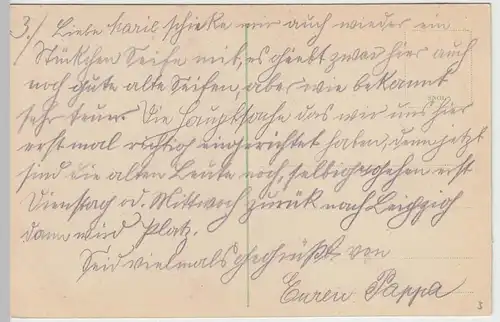 3./ Liebe Karil schicke mir auch wieder ein
Stückchen Seife mit, es giebt zwar hier auch
noch gute alte Seifen, aber wie bekannt
sehr teuer. Die Hauptsache das wir uns hier
erst mal richtig eingerichtet haben, denn jetzt
sind die alten Leute noch, selbige gehen erst
Dienstag od. Mittwoch zurük nach Leipzig
dann wird Platz.
Seid vielmals gegrüßt von
Euren Pappa
3